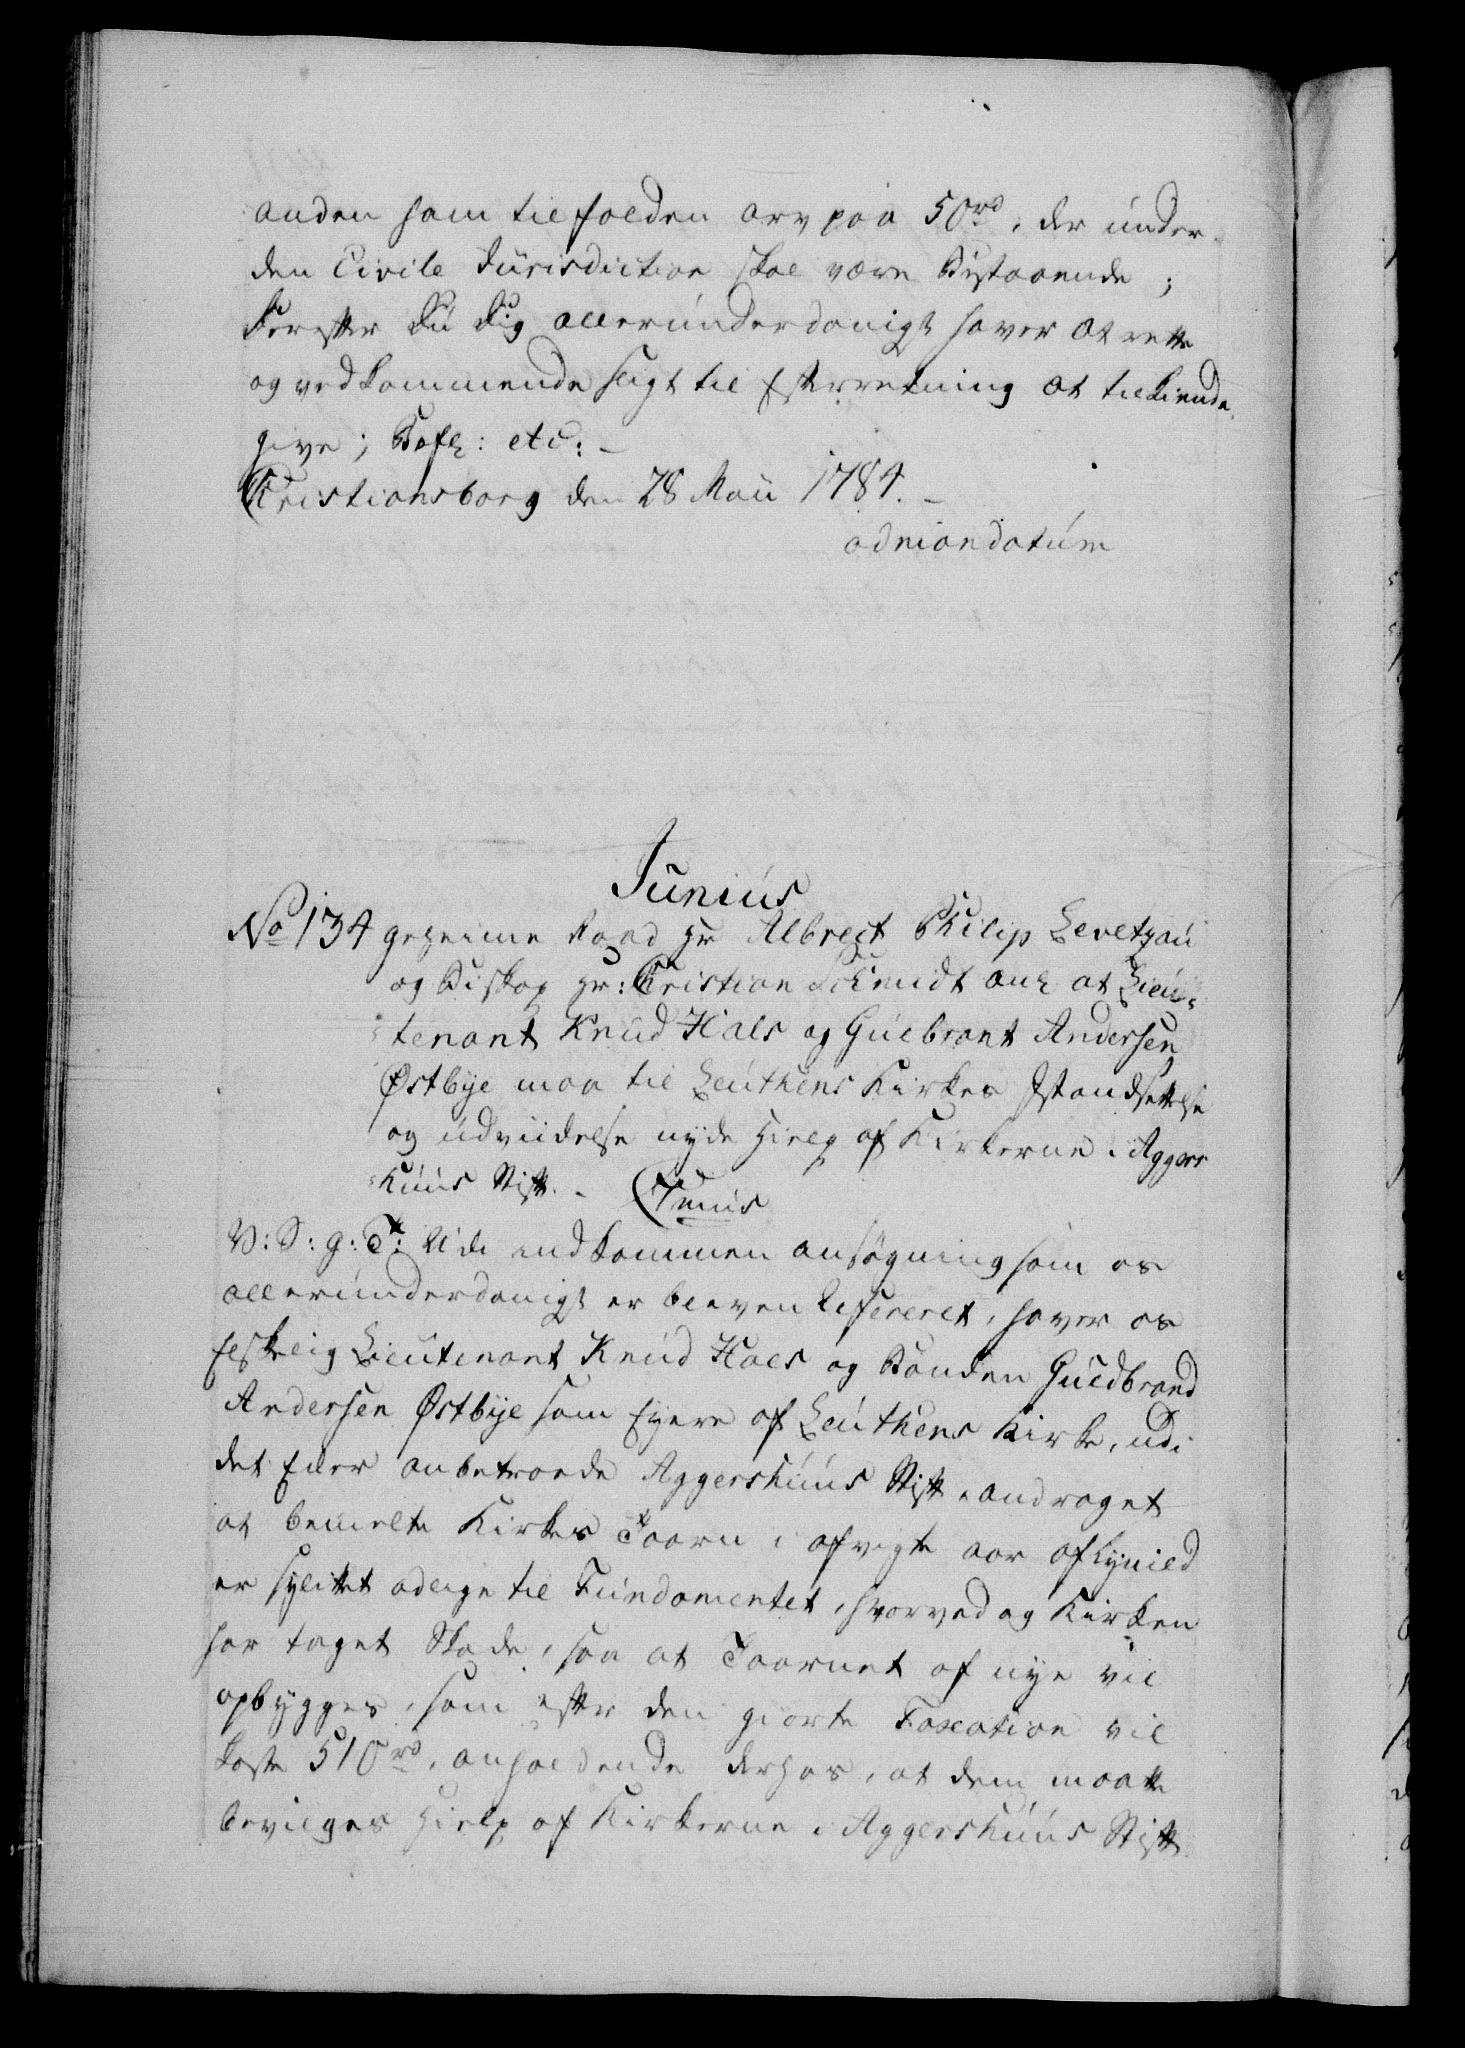 anden ham tilfalden arv paa 50rd, der under
den Civile Jurisdiction skal være Bestaaende;
Derefter Du Dig allerunderdanigst haver at rette
og vedkommende sligt til Efterretning at tilkiende
give; Befl: etc: –
Cristiansborg den 28 Maii 1784. –
ad mandatum
Junius
No 134 geheime Raad Hr Albrect Philip Levetzau
og Biskop Hr: Cristian Schmidt anl at Lieu-
tenant Knud Hals og Gulbrant Andersen
Østbye maa til Leuthens Kirkes Istandsettelse
og udviidelse nyde Hielp af Kirkerne i Agger
huus Stift. – Junius
V: S: g: T: Udi indkommen ansøgning som os
allerunderdanigst er bleven Refereret, haver os
elskelig Lieutenant Knud Hals og Bonden Guldbrand
Andersen Østbye som Eyere af Leuthens Kirke, udi
det Eder anbetroede Aggershuus Stift, andraget
at bemelte Kirkes Taarn i afvigte aar af Lynild
er splittet adlige til Fundamentet, hvorved og Kirken
har taget Skade, saa at Taarnet af nye vil
opbygges, som efter den giorte Taxation vil
koste 510rd, anholdende derhos, at dem maatte
bevilges Hielp af Kirkerne i Aggershuus Stift